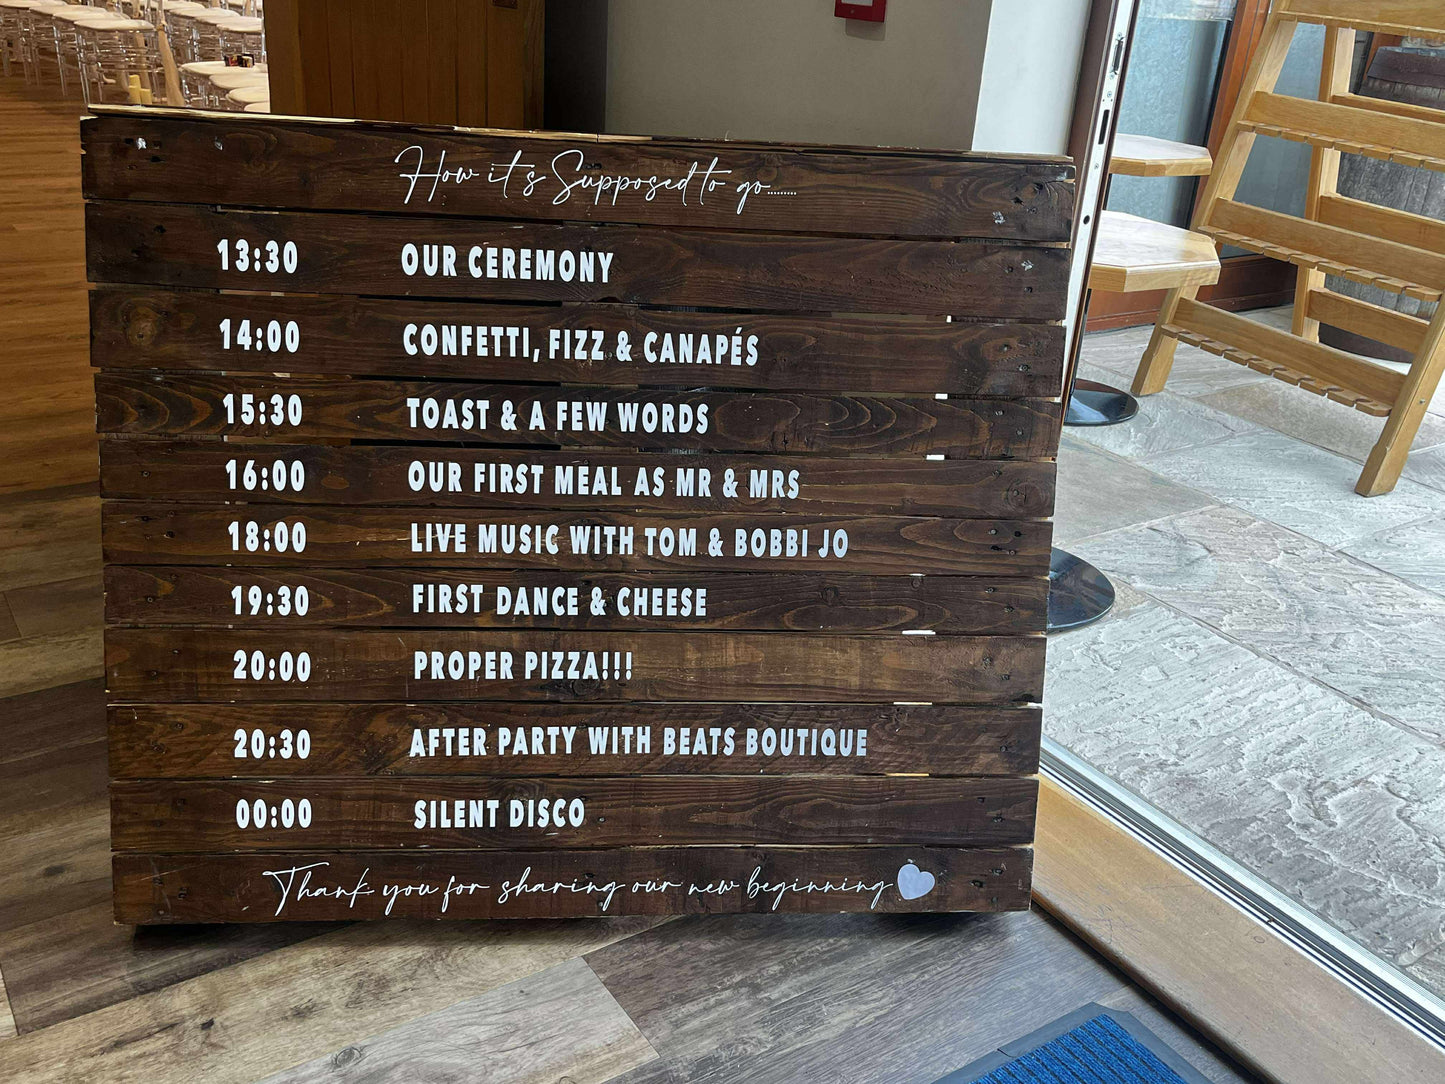 How it's Supposed to go.........
13:30 OUR CEREMONY
14:00 CONFETTI, FIZZ & CANAPÉS
15:30 TOAST & A FEW WORDS
16:00 OUR FIRST MEAL AS MR & MRS
18:00 LIVE MUSIC WITH TOM & BOBBI JO
19:30 FIRST DANCE & CHEESE
20:00 PROPER PIZZA!!!
20:30 AFTER PARTY WITH BEATS BOUTIQUE
00:00 SILENT DISCO
Thank you for sharing our new beginning